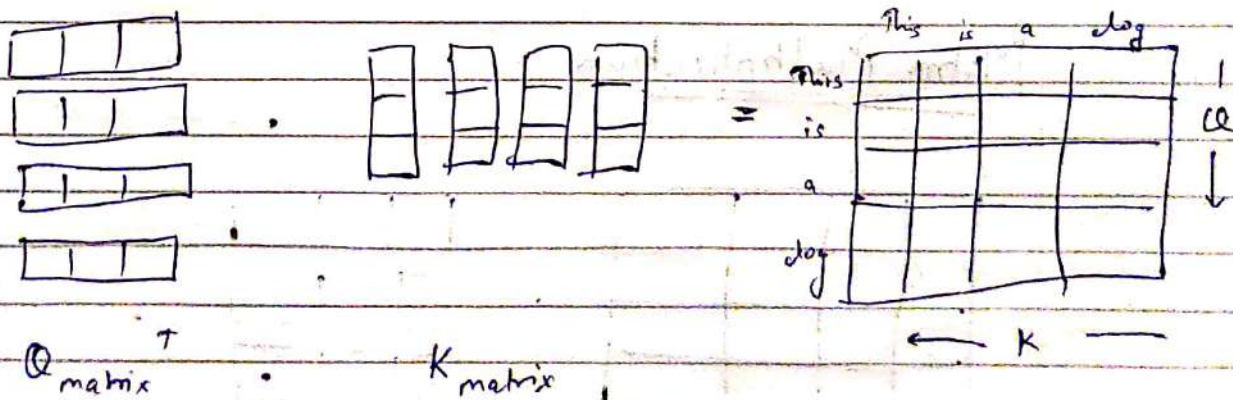 This is a dog
This
is
a
dog
Q
. =
← K
Q matrix T . K matrix